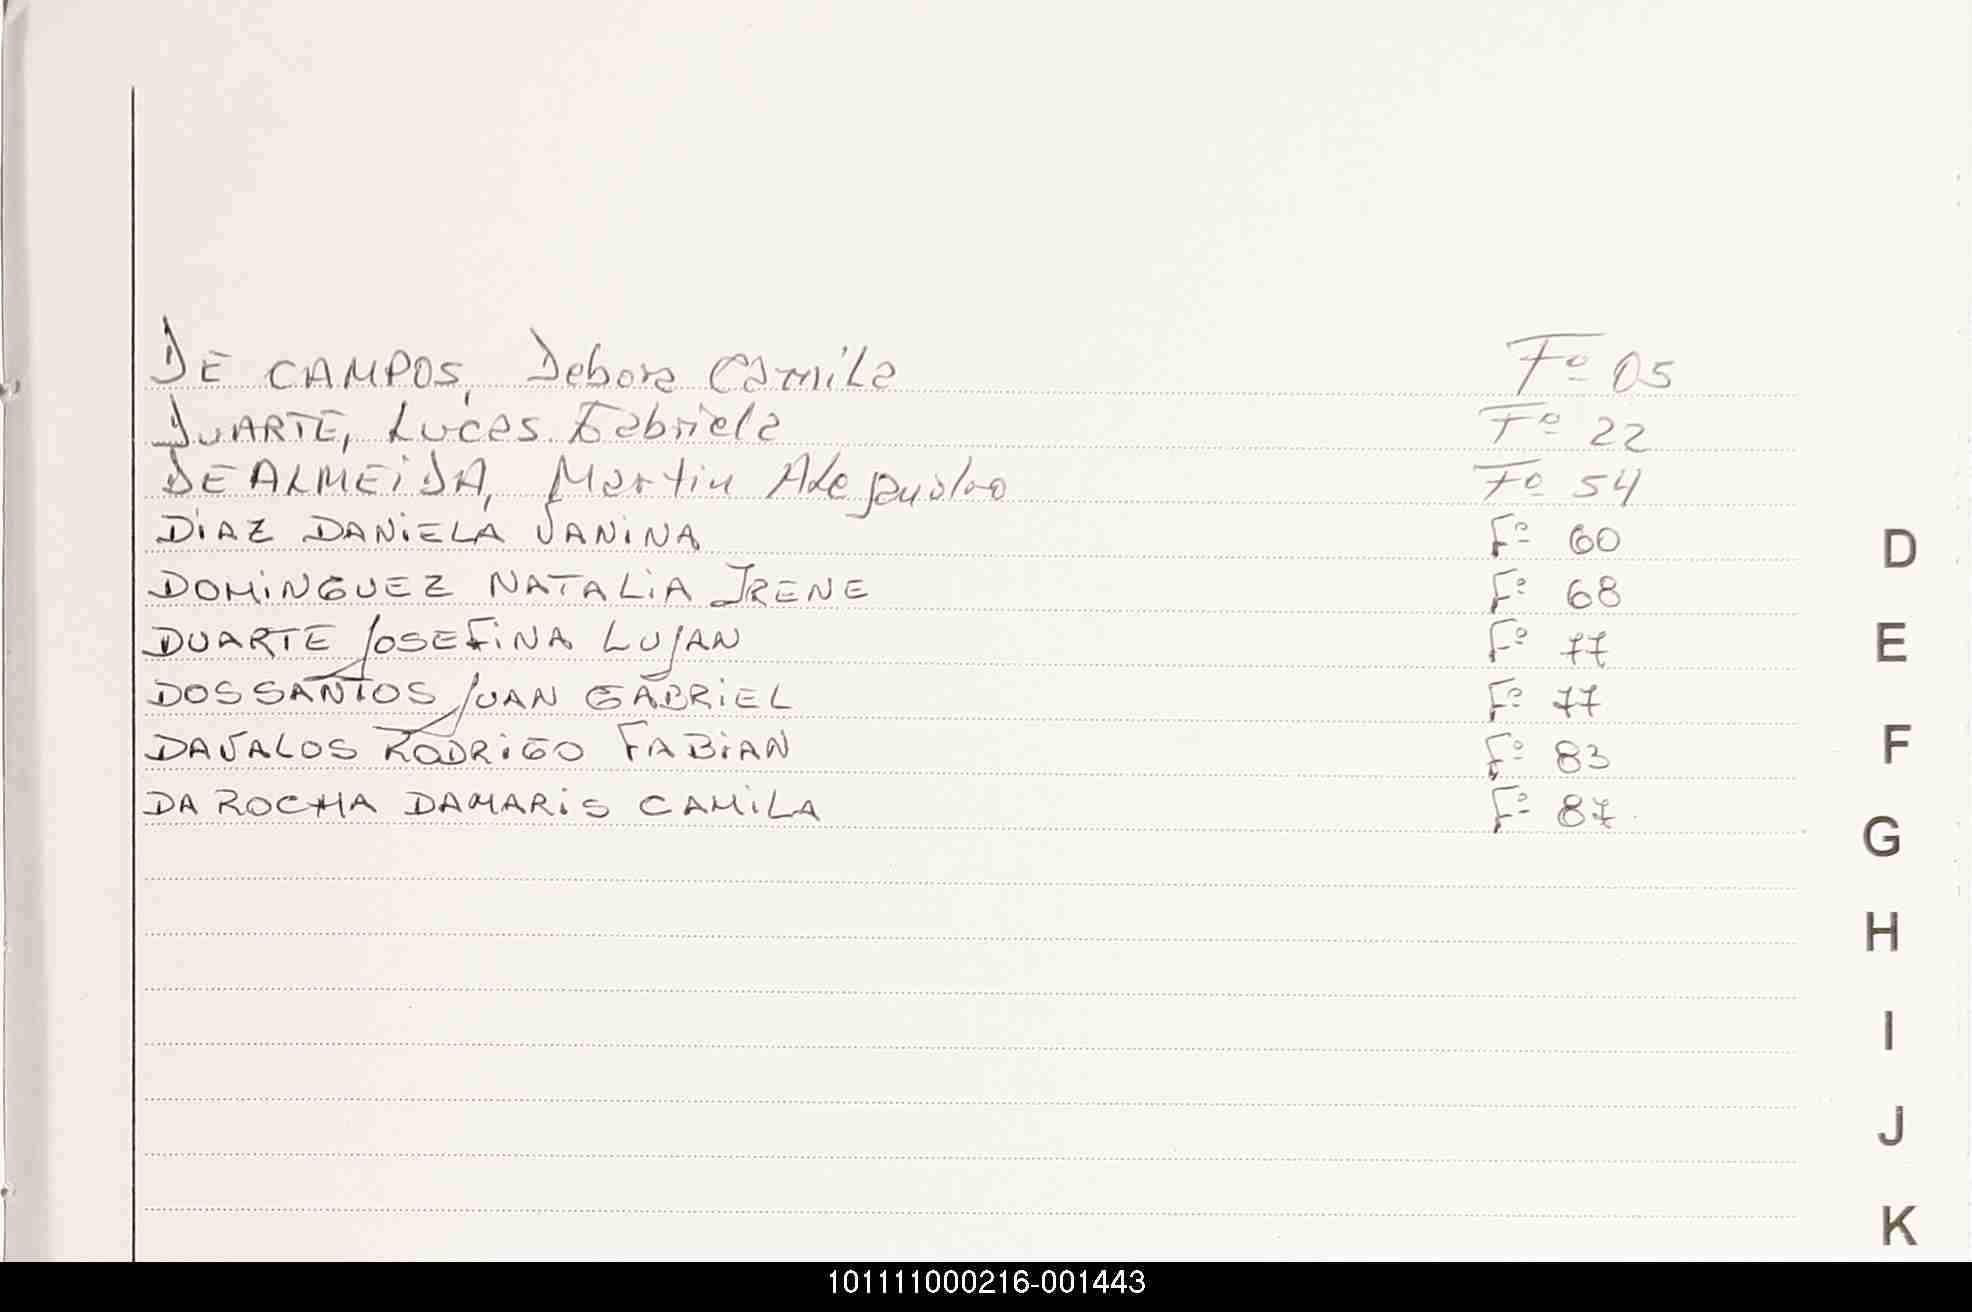 DE CAMPOS, Debora Camila Fº 05
DUARTE, Lucas Gabriela Fº 22
DE ALMEIDA, Martin Alejandro Fº 54
DIAZ DANIELA VANINA Fº 60
D
DOMINGUEZ NATALIA IRENE Fº 68
DUARTE JOSEFINA LUJAN Fº 77
E
DOS SANTOS JUAN GABRIEL Fº 77
DAVALOS RODRIGO FABIAN Fº 83
F
DA ROCHA DAMARIS CAMILA Fº 87
G
H
I
J
K
101111000216-001443